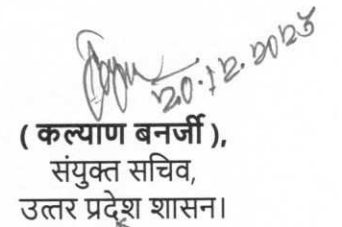 20.12.2023
( कल्याण बनर्जी ),
संयुक्त सचिव,
उत्तर प्रदेश शासन।